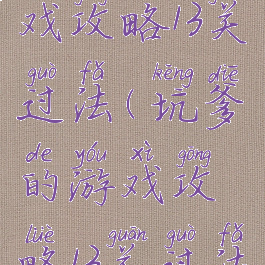 戏攻略13关
guò fǎ kēng diē
过法(坑爹
de yóu xì gōng
的游戏攻
lüè guān guò fǎ
略13关过法